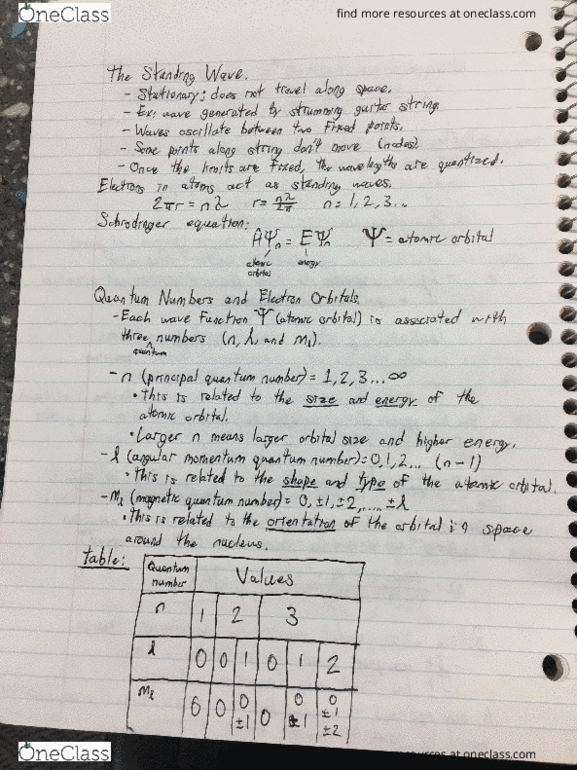 OneClass
find more resources at oneclass.com
The Standing Wave.
- Stationary; does not travel along space.
- Ex: wave generated by strumming guitar string.
- Waves oscillate between two fixed points.
- Some points along string don't move (nodes).
- Once the limits are fixed, the wavelengths are quantized.
Electrons in atoms act as standing waves.
2πr = nλ r = nλ/2π n = 1, 2, 3...
Schrodinger equation:
ĤΨn = EΨn Ψ = atomic orbital
atomic orbital energy
Quantum Numbers and Electron Orbitals.
- Each wave function Ψ (atomic orbital) is associated with
three quantum numbers (n, l, and ml).
- n (principal quantum number) = 1, 2, 3 ... ∞
• This is related to the size and energy of the
atomic orbital.
• Larger n means larger orbital size and higher energy.
- l (angular momentum quantum number) = 0, 1, 2 ... (n-1)
• This is related to the shape and type of the atomic orbital.
- ml (magnetic quantum number) = 0, ±1, ±2, .... ±l
• This is related to the orientation of the orbital in space
around the nucleus.
table:
Quantum number Values
n 1 2 3
l 0 0 1 0 1 2
ml 0 0 0 ±1 0 0 ±1 0 ±1 ±2
OneClass
resources at oneclass.com